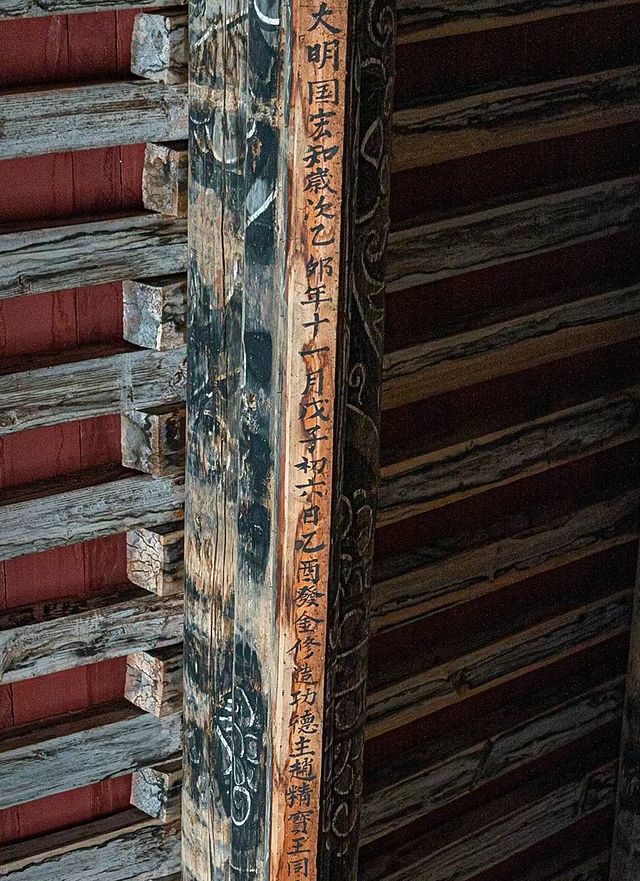 大明国宏知歳次乙卯年十一月戊子初六日乙酉發金修造功德主趙精寳王同